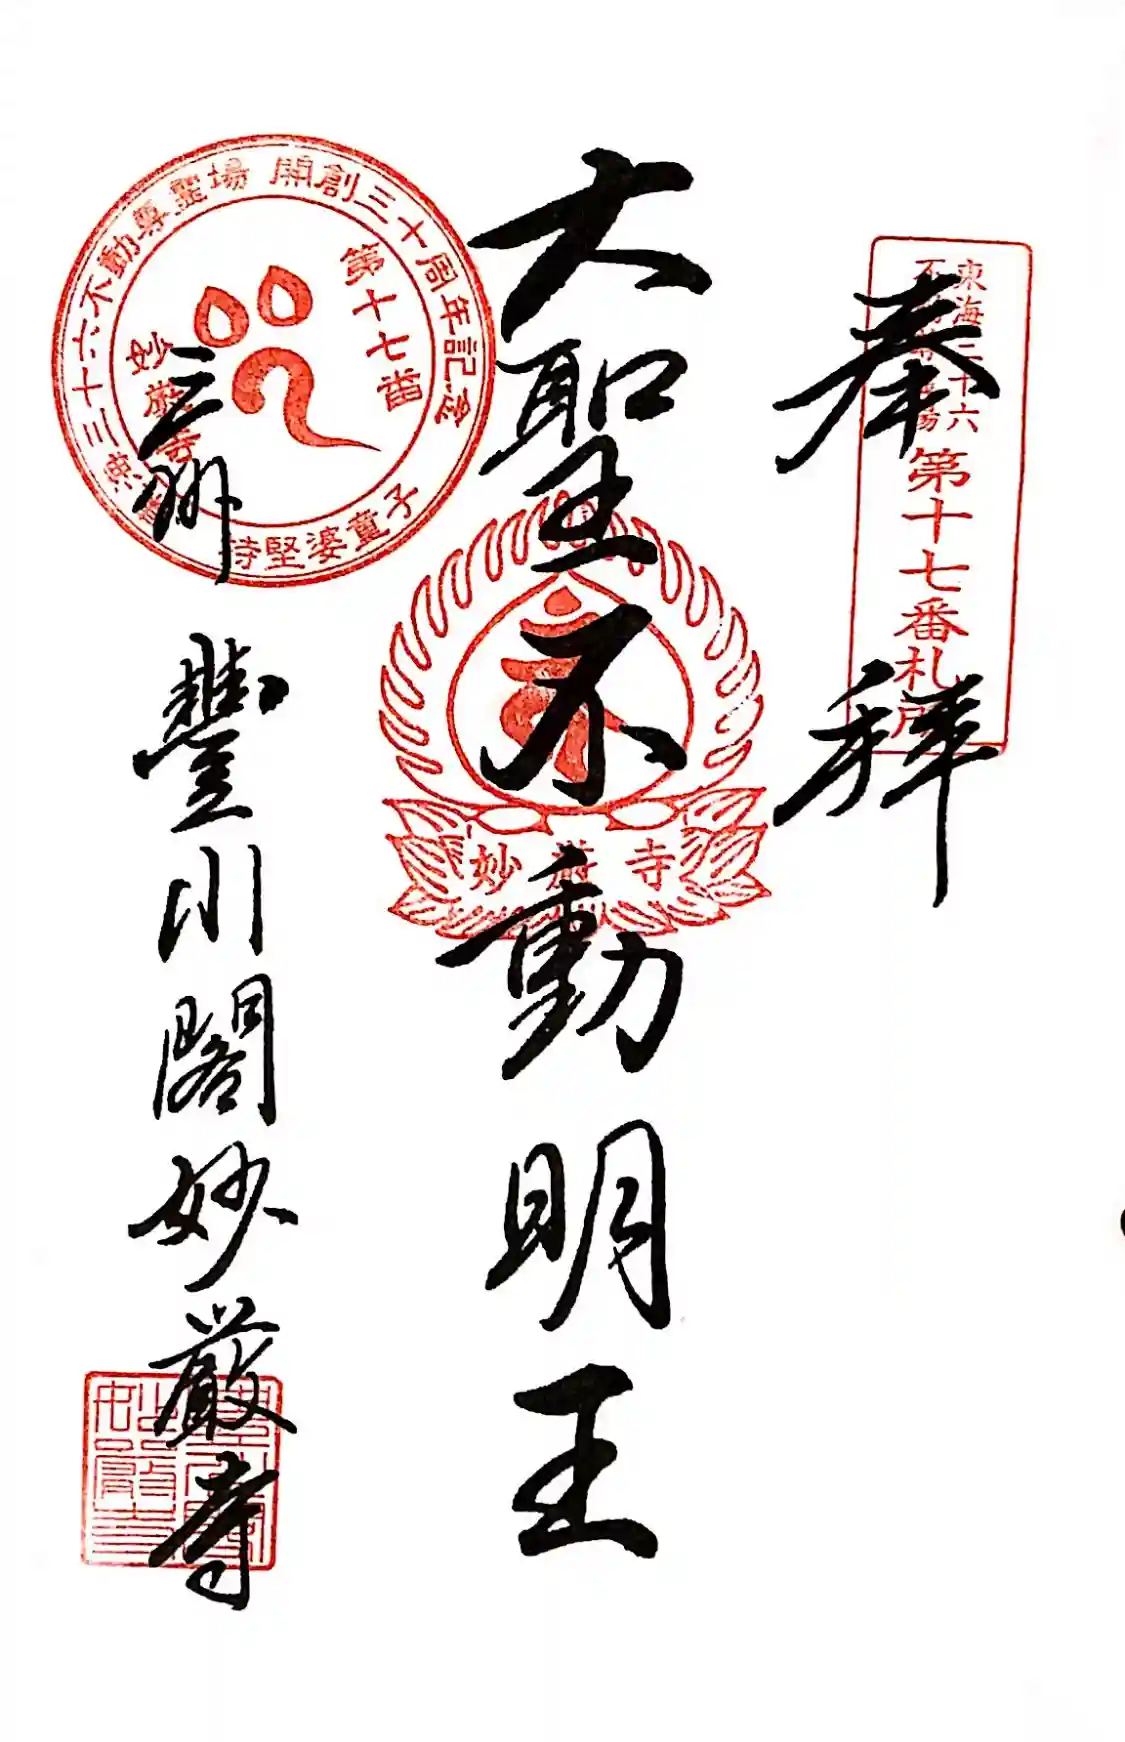 奉拜
東海三十六
不動尊霊場
第十七番札所
大聖不動明王
妙厳寺
東海三十六不動尊霊場 開創三十周年記念
第十七番
妙厳寺
持堅婆童子
三州
豐川閣妙嚴寺